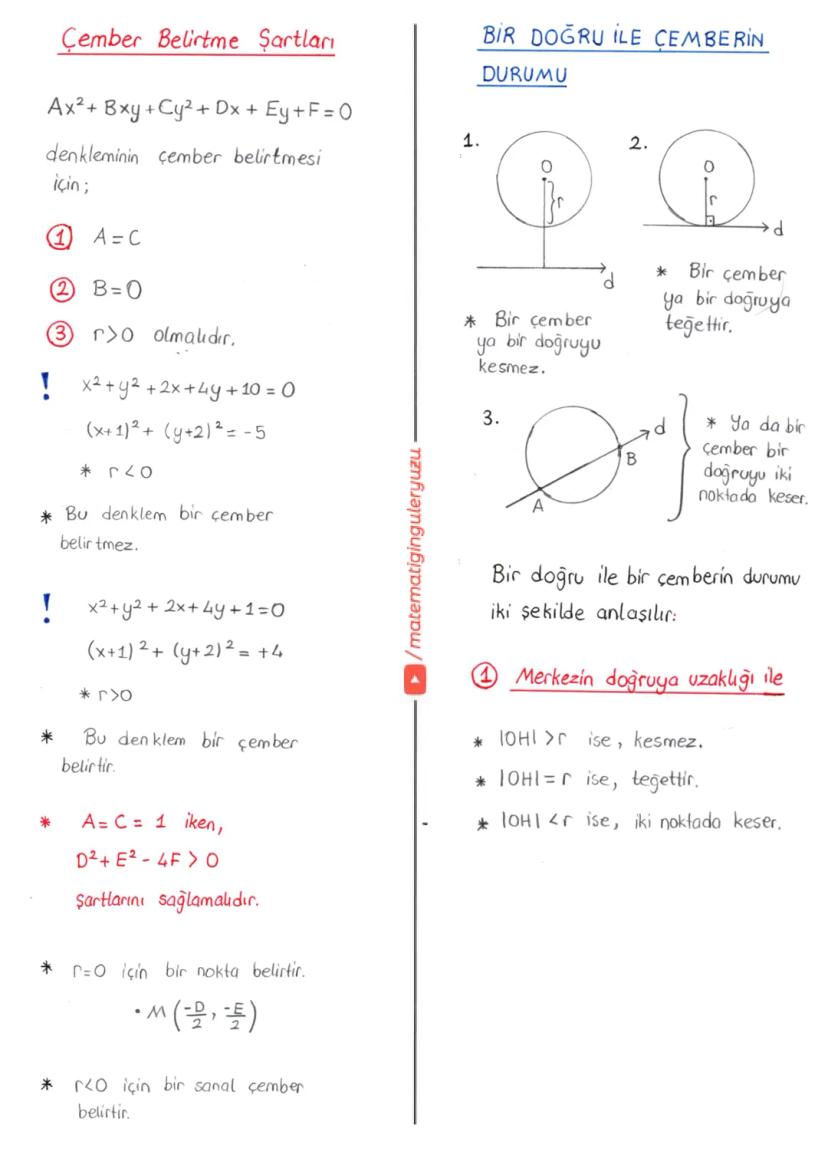 Çember Belirtme Şartları
Ax² + Bxy + Cy² + Dx + Ey + F = 0
denkleminin çember belirtmesi
için;
① A = C
② B = 0
③ r>0 olmalıdır.
! x² + y² + 2x + 4y + 10 = 0
(x+1)² + (y+2)² = -5
* r<0
* Bu denklem bir çember
belirtmez.
! x² + y² + 2x + 4y + 1 = 0
(x+1)² + (y+2)² = +4
* r>0
* Bu denklem bir çember
belirtir.
* A = C = 1 iken,
D² + E² - 4F > 0
Şartlarını sağlamalıdır.
* r=0 için bir nokta belirtir.
• M (-D/2, -E/2)
* r<0 için bir sanal çember
belirtir.
/matematiginguleryuzu
BİR DOĞRU İLE ÇEMBERİN
DURUMU
1.
O
r
d
* Bir çember
ya bir doğruyu
kesmez.
2.
O
r
d
* Bir çember
ya bir doğruya
teğettir.
3.
d
B
A
* Ya da bir
çember bir
doğruyu iki
noktada keser.
Bir doğru ile bir çemberin durumu
iki şekilde anlaşılır:
① Merkezin doğruya uzaklığı ile
* |OH| > r ise, kesmez.
* |OH| = r ise, teğettir.
* |OH| < r ise, iki noktada keser.